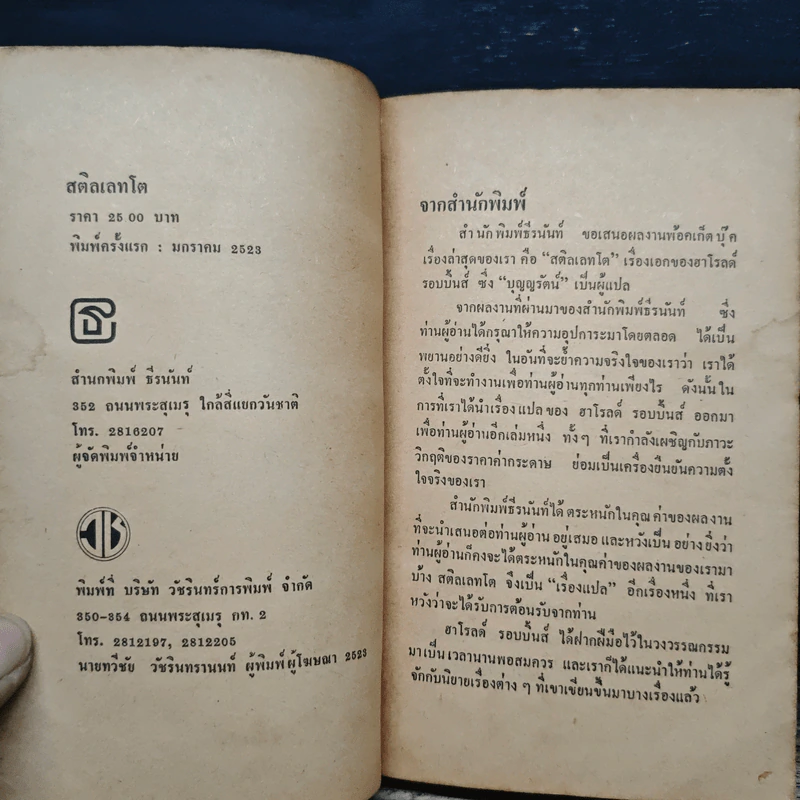 สติลเลทโต
ราคา 25 00 บาท
พิมพ์ครั้งแรก : มกราคม 2523
สำนกพิมพ์ ธีรนันท์
352 ถนนพระสุเมรุ ใกล้สี่แยกวันชาติ
โทร. 2816207
ผู้จัดพิมพ์จำหน่าย
พิมพ์ที่ บริษัท วัชรินทร์การพิมพ์ จำกัด
350-354 ถนนพระสุเมรุ กท. 2
โทร. 2812197, 2812205
นายทวีชัย วัชรินทรานนท์ ผู้พิมพ์ผู้โฆษณา 2523
จากสำนักพิมพ์
สำนักพิมพ์ธีรนันท์ ขอเสนอผลงานพ้อคเก็ตบุ๊ค
เรื่องล่าสุดของเรา คือ “สติลเลทโต” เรื่องเอกของฮาโรลด์
รอบบิ้นส์ ซึ่ง “บุญญรัตน์” เป็นผู้แปล
จากผลงานที่ผ่านมาของสำนักพิมพ์ธีรนันท์ ซึ่ง
ท่านผู้อ่านได้กรุณาให้ความอุปการะมาโดยตลอด ได้เป็น
พยานอย่างดียิ่ง ในอันที่จะย้ำความจริงใจของเราว่า เราได้
ตั้งใจที่จะทำงานเพื่อท่านผู้อ่านทุกท่านเพียงไร ดังนั้นใน
การที่เราได้นำเรื่องแปลของ ฮาโรลด์ รอบบิ้นส์ ออกมา
เพื่อท่านผู้อ่านอีกเล่มหนึ่ง ทั้งๆ ที่เรากำลังเผชิญกับภาวะ
วิกฤติของราคาค่ากระดาษ ย่อมเป็นเครื่องยืนยันความตั้ง
ใจจริงของเรา
สำนักพิมพ์ธีรนันท์ได้ตระหนักในคุณค่าของผลงาน
ที่จะนำเสนอต่อท่านผู้อ่านอยู่เสมอ และหวังเป็นอย่างยิ่งว่า
ท่านผู้อ่านก็คงจะได้ตระหนักในคุณค่าของผลงานของเรามา
บ้าง สติลเลทโต จึงเป็น “เรื่องแปล” อีกเรื่องหนึ่ง ที่เรา
หวังว่าจะได้รับการต้อนรับจากท่าน
ฮาโรลด์ รอบบิ้นส์ ได้ฝากฝีมือไว้ในวงวรรณกรรม
มาเป็นเวลานานพอสมควร และเราก็ได้แนะนำให้ท่านได้รู้
จักกับนิยายเรื่องต่าง ๆ ที่เขาเขียนขึ้นมาบางเรื่องแล้ว